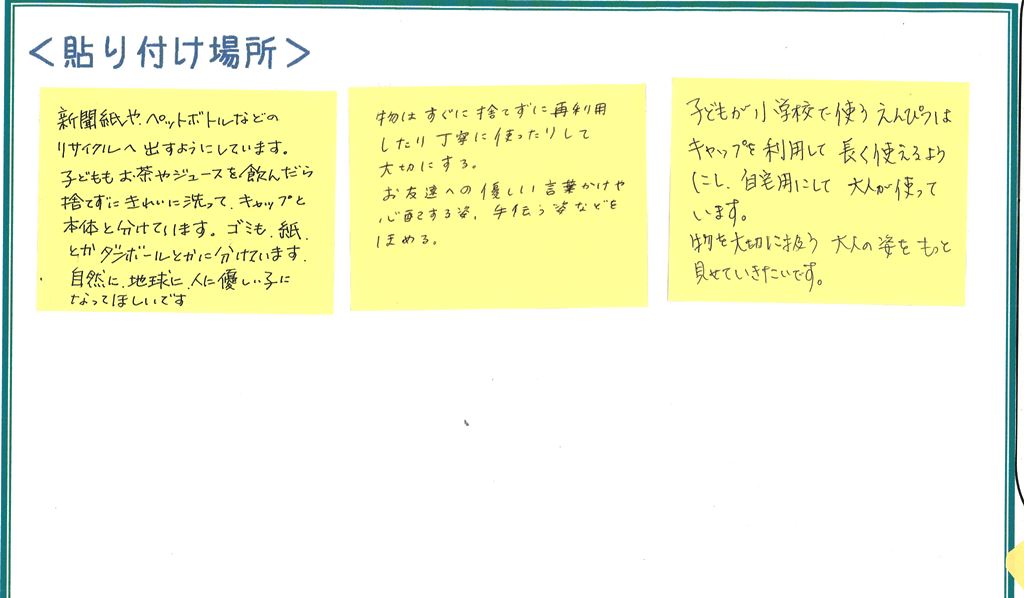 ＜貼り付け場所＞
新聞紙や、ペットボトルなどの
リサイクルへ出すようにしています。
子どももお茶やジュースを飲んだら
捨てずにきれいに洗って、キャップと
本体と分けています。ゴミも、紙、
とかダンボールとかに分けています、
自然に、地球に、人に優しい子に
なってほしいです
物はすぐに捨てずに再利用
したり丁寧に使ったりして
大切にする。
お友達への優しい言葉かけや
心配する姿、手伝う姿などを
ほめる。
子どもが小学校で使うえんぴつは
キャップを利用して長く使えるよう
にし、自宅用にして大人が使って
います。
物を大切に扱う大人の姿をもっと
見せていきたいです。